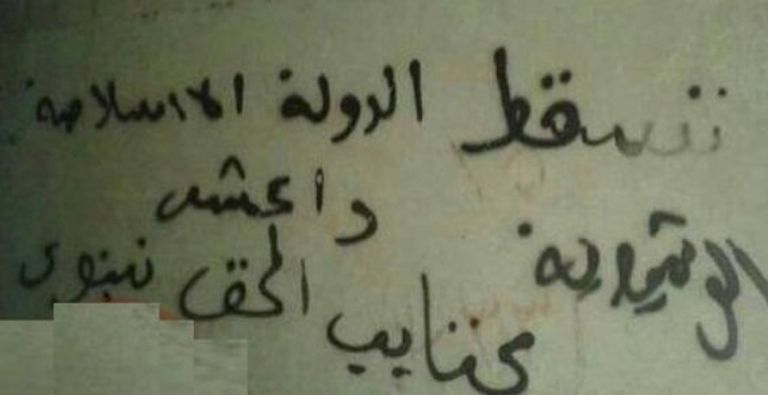 تسقط الدولة الاسلامية
داعش
الوثنية
كتايب الحق نينوى